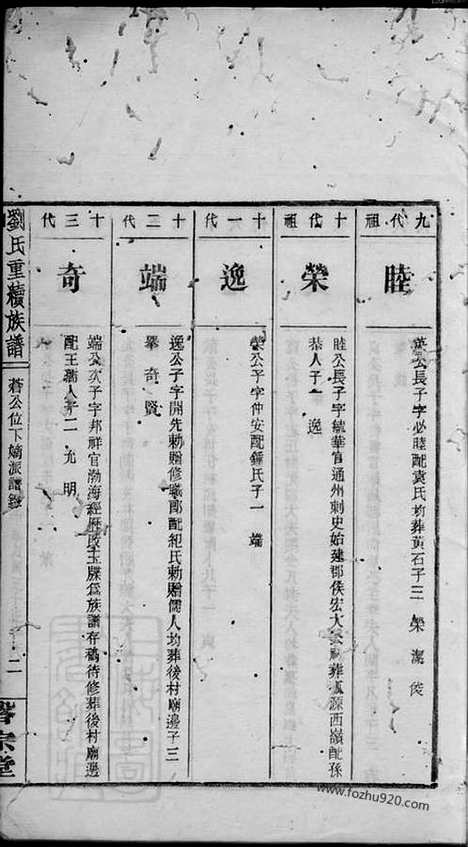 九代祖
睦
萬公長子字必睦配袁氏均葬黃石子三 榮 潔 俊
十代祖
榮
睦公長子字毓華官通州刺史始建郡侯宏大
葬 源西嶺配孫恭人子一 逸
十一代
逸
榮公子字仲安配鍾氏子一 端
十二代
端
逸公子字開先勅贈修職郎配紀氏勅贈儒人均葬後村廟邊子三
舉 奇 賢
十三代
奇
端公次子字邦祥官渤海經歷改玉牒爲族譜存稿待修葬後村廟邊
配王孺人子二 允 明
劉氏重續族譜
蒼公位下嫡派譜
二
堂
www.fozhu920.com